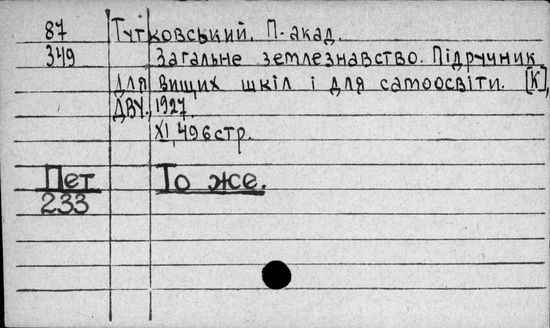 87 Тутковський. П. акад.
349 Загальне землезнавство. Підручник
для вищих шкіл і для самоосвіти. [К],
ДВУ, 1927.
XI, 496 стр.
Пет То же.
233